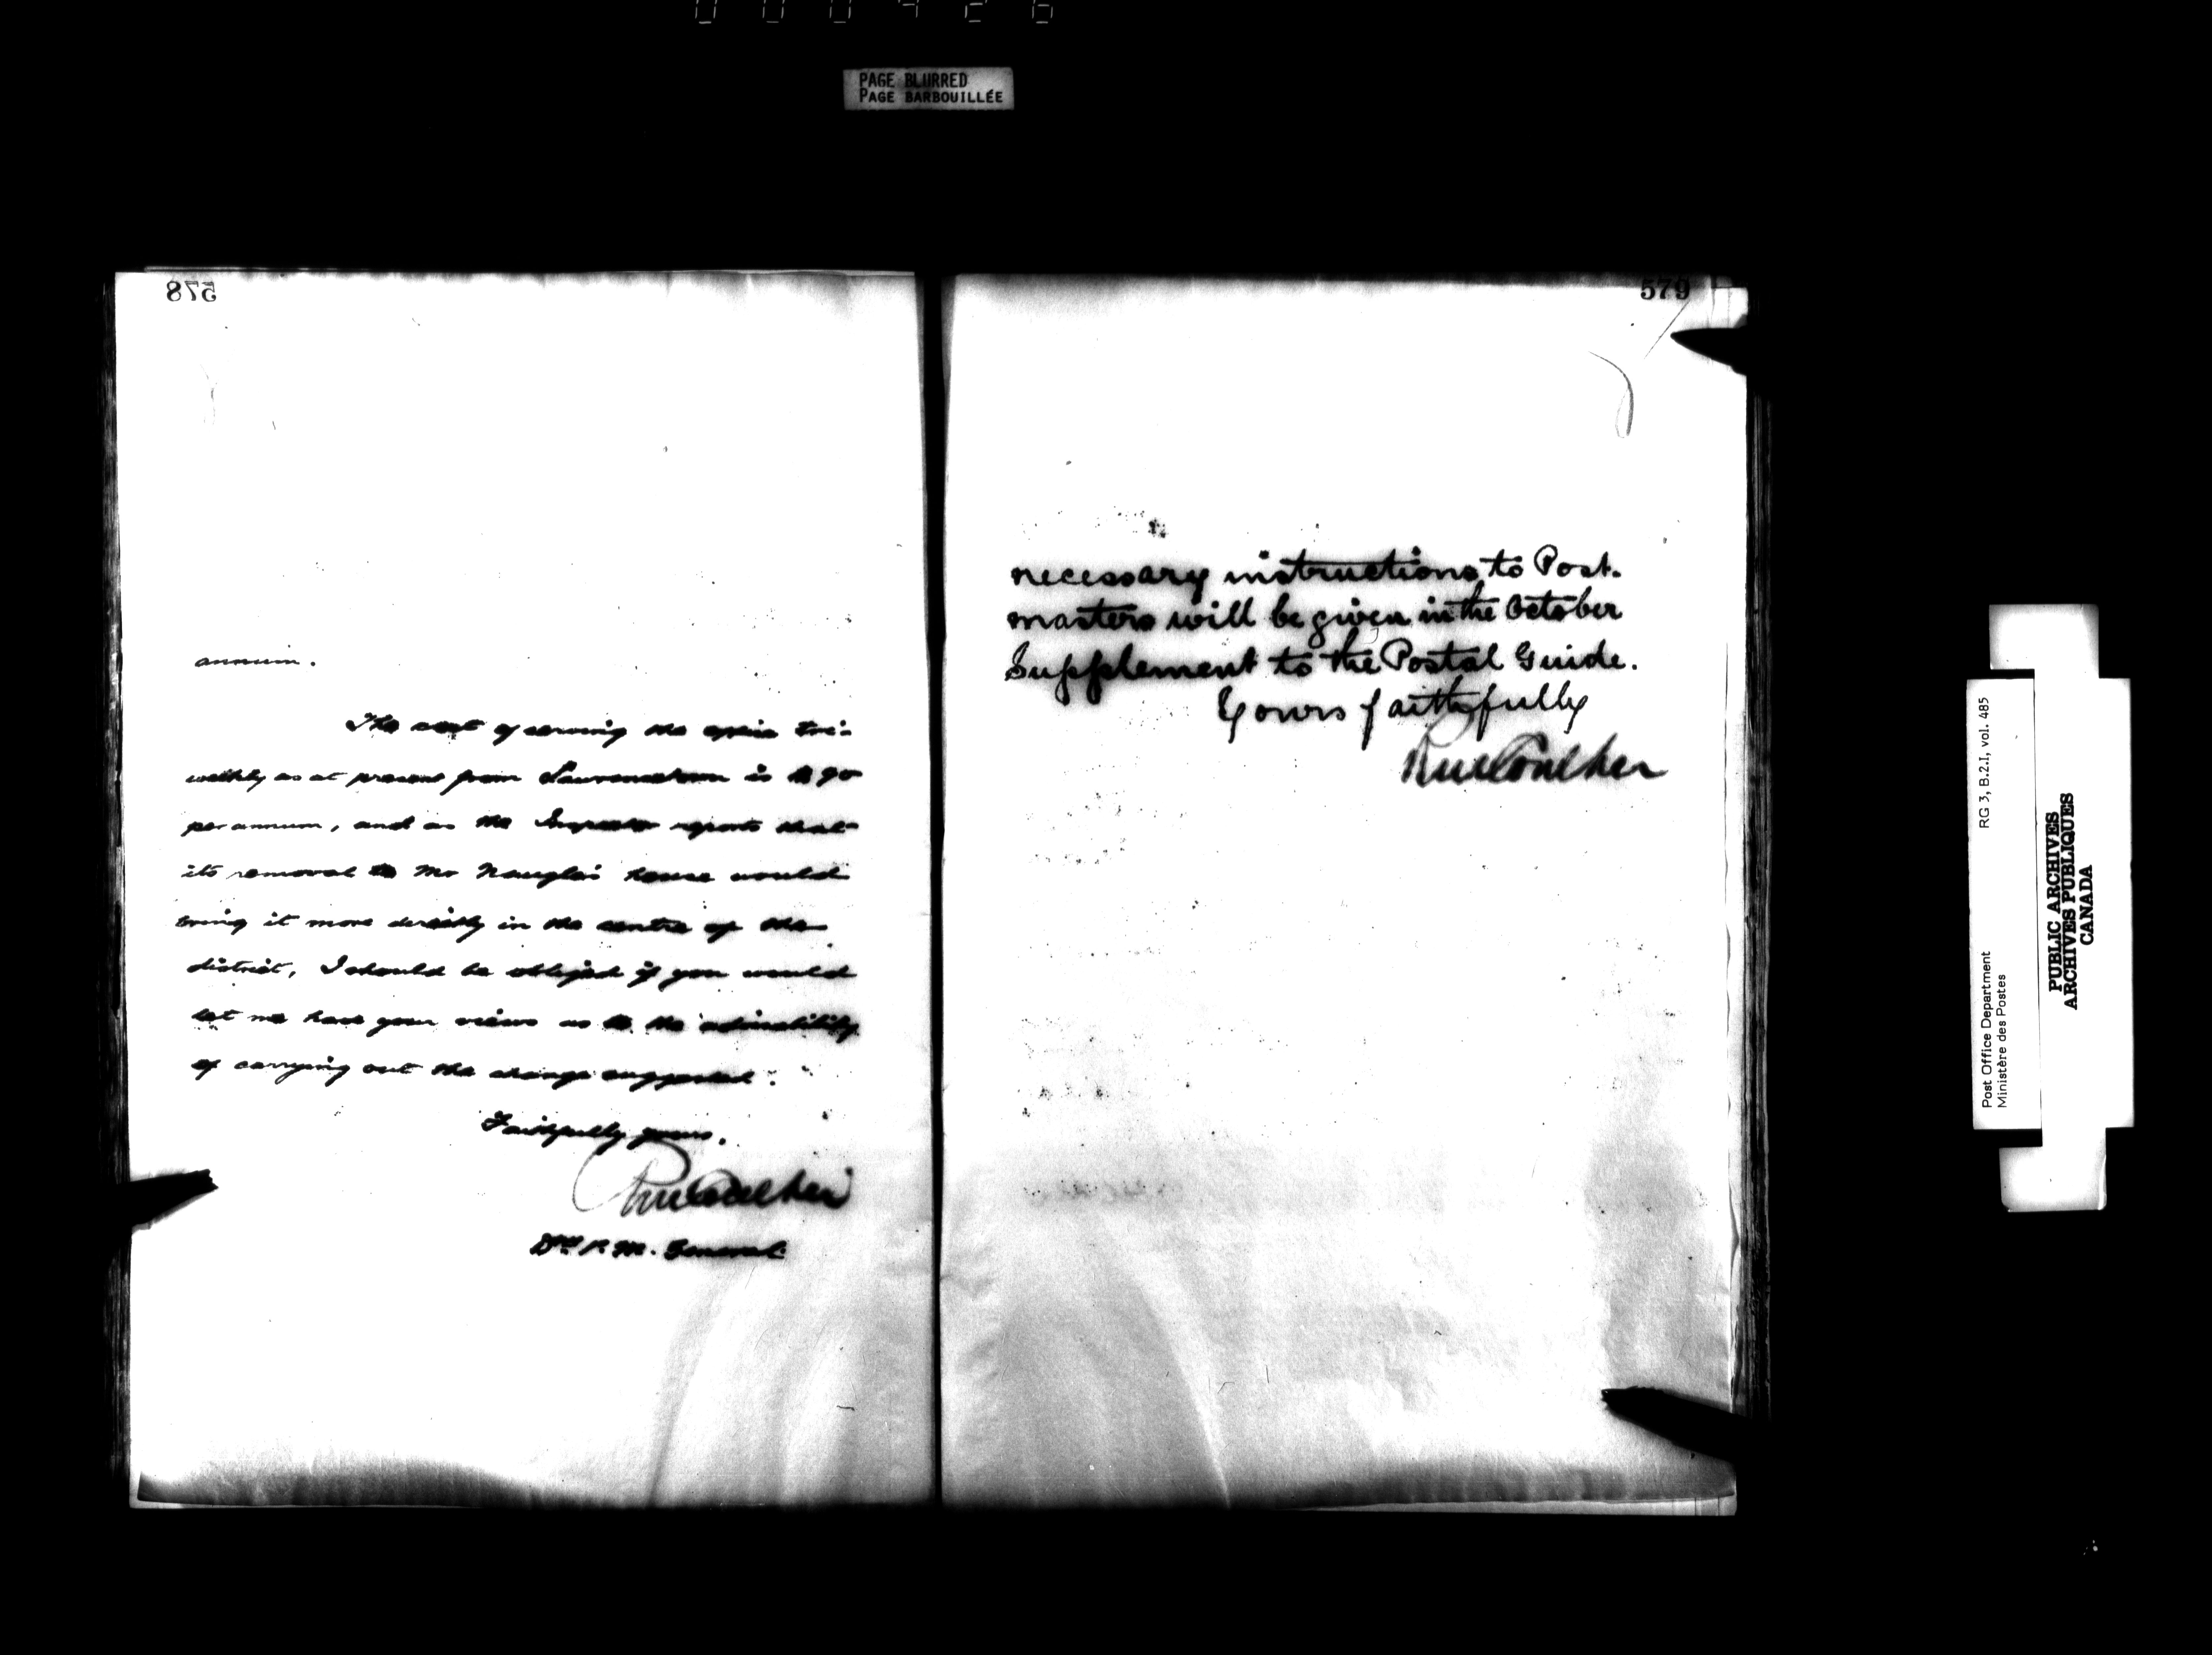 PAGE BLURRED
PAGE BARBOUILLÉE
578
annum.
The cost of serving the office tri-
weekly as at present from Lawrencetown is $90
per annum, and as the Inspector reports that
its removal to Mr Naugler's house would
bring it more directly in the centre of the
district, I should be obliged if you would
let me have your views as to the advisability
of carrying out the change suggested.
Faithfully yours,
Dpy P. M. General.
579
necessary instructions to Post-
masters will be given in the October
Supplement to the Postal Guide.
Yours faithfully
Post Office Department
Ministère des Postes
RG 3, B.2.I, vol. 485
PUBLIC ARCHIVES
ARCHIVES PUBLIQUES
CANADA